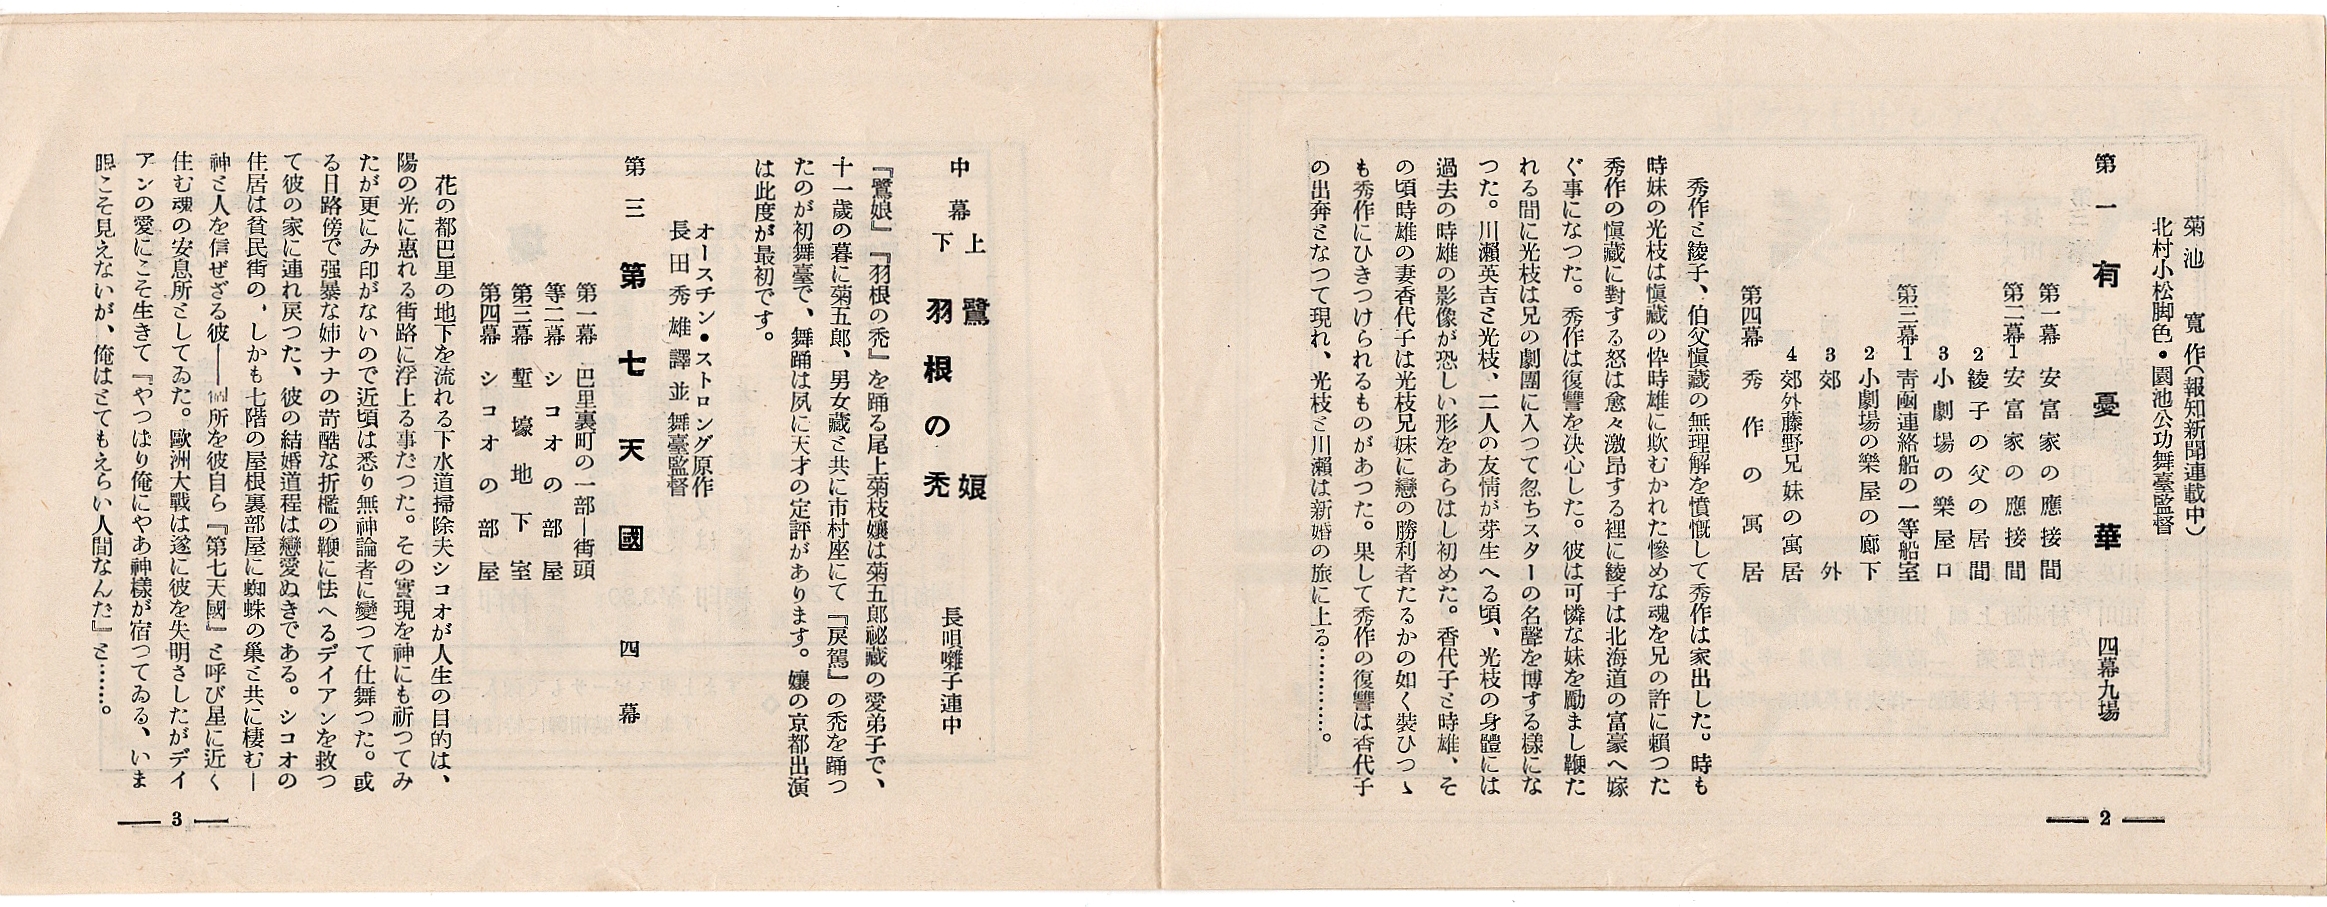 菊池寛作(報知新聞連載中)
北村小松脚色・園池公功舞臺監督
第一 有憂華 四幕九場
第一幕 安富家の應接間
第二幕1安富家の應接間
2綾子の父の居間
3小劇場の樂屋口
第三幕1靑凾連絡船の一等船室
2小劇場の樂屋の廊下
3郊外
4郊外藤野兄妹の寓居
第四幕 秀作の寓居
秀作と綾子、伯父愼藏の無理解を憤慨して秀作は家出した。時も
時妹の光枝は愼藏の忰時雄に欺むかれた慘めな魂を兄の許に賴つた
秀作の愼藏に對する怒は愈々激昂する裡に綾子は北海道の富豪へ嫁
ぐ事になつた。秀作は復讐を決心した。彼は可憐な妹を勵まし鞭た
れる間に光枝は兄の劇團に入つて忽ちスターの名聲を博する樣にな
つた。川瀨英吉と光枝、二人の友情が芽生へる頃、光枝の身體には
過去の時雄の影像が恐しい形をあらはし初めた。香代子と時雄、そ
の頃時雄の妻香代子は光枝兄妹に戀の勝利者たるかの如く裝ひつゝ
も秀作にひきつけられるものがあつた。果して秀作の復讐は香代子
の出奔となつて現れ、光枝と川瀨は新婚の旅に上る…………。
2
中幕
上 鷺娘
下 羽根の禿
長唄囃子連中
『鷺娘』『羽根の禿』を踊る尾上菊枝孃は菊五郎祕藏の愛弟子で、
十一歲の暮に菊五郎、男女藏と共に市村座にて『戾駕』の禿を踊つ
たのが初舞臺で、舞踊は夙に天才の定評があります。孃の京都出演
は此度が最初です。
オースチン・ストロング原作
長田秀雄譯並舞臺監督
第三 第七天國 四幕
第一幕 巴里裏町の一部―街頭
等二幕 シコオの部屋
第三幕 塹壕地下室
第四幕 シコオの部屋
花の都巴里の地下を流れる下水道掃除夫シコオが人生の目的は、
陽の光に惠れる街路に浮上る事だつた。その實現を神にも祈つてみ
たが更にみ印がないので近頃は悉り無神論者に變つて仕舞つた。或
る日路傍で强暴な姉ナナの苛酷な折檻の鞭に怯へるデイアンを救つ
て彼の家に連れ戾つた、彼の結婚道程は戀愛ぬきである。シコオの
住居は貧民街の、しかも七階の屋根裏部屋に蜘蛛の巢と共に棲む―
神と人を信ぜざる彼――個所を彼自ら『第七天國』と呼び星に近く
住む魂の安息所としてゐた。歐洲大戰は遂に彼を失明さしたがデイ
アンの愛にこそ生きて『やつぱり俺にやあ神樣が宿つてゐる、いま
眼こそ見えないが、俺はとてもえらい人間なんだ』と……。
3